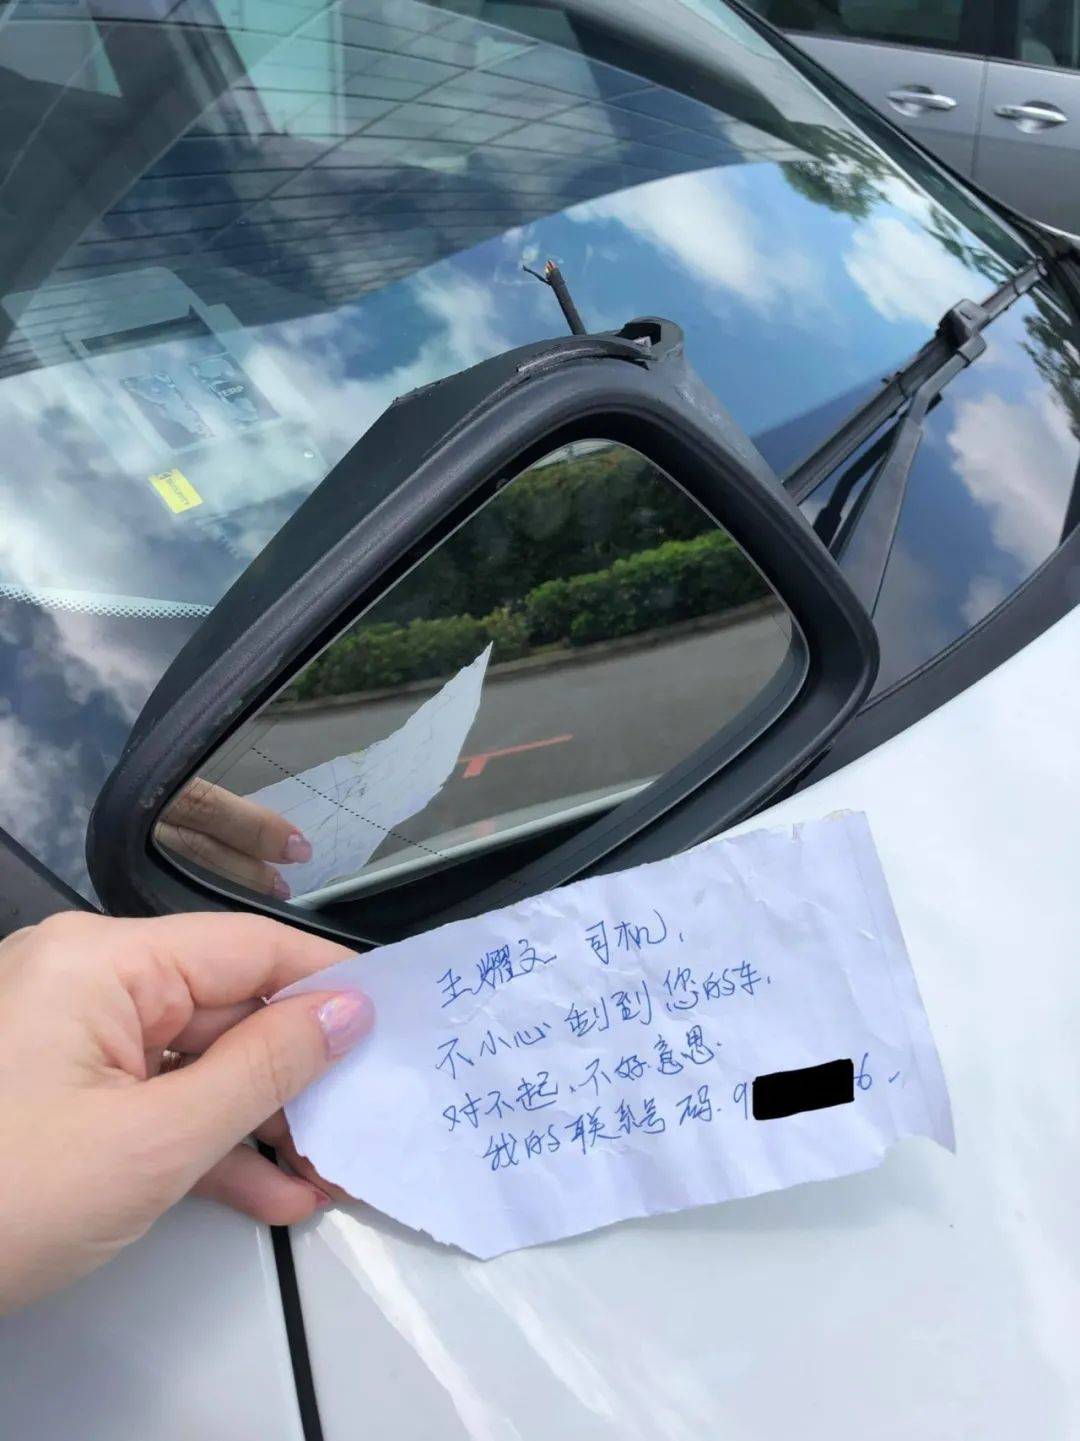 王耀文 司机,
不小心刮到您的车,
对不起、不好意思.
我的联系号码. 9 6
ERP
SECURITY